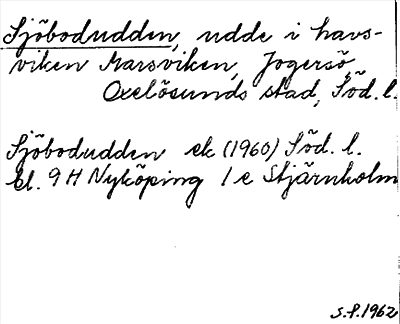 Sjöbodudden, udde i havs-
viken Marsviken, Jogersö,
Oxelösunds stad, Söd. l.
Sjöbodudden ek (1960) Söd. l.
bl. 9 H Nyköping 1 e Stjärnholm
S.P. 1962